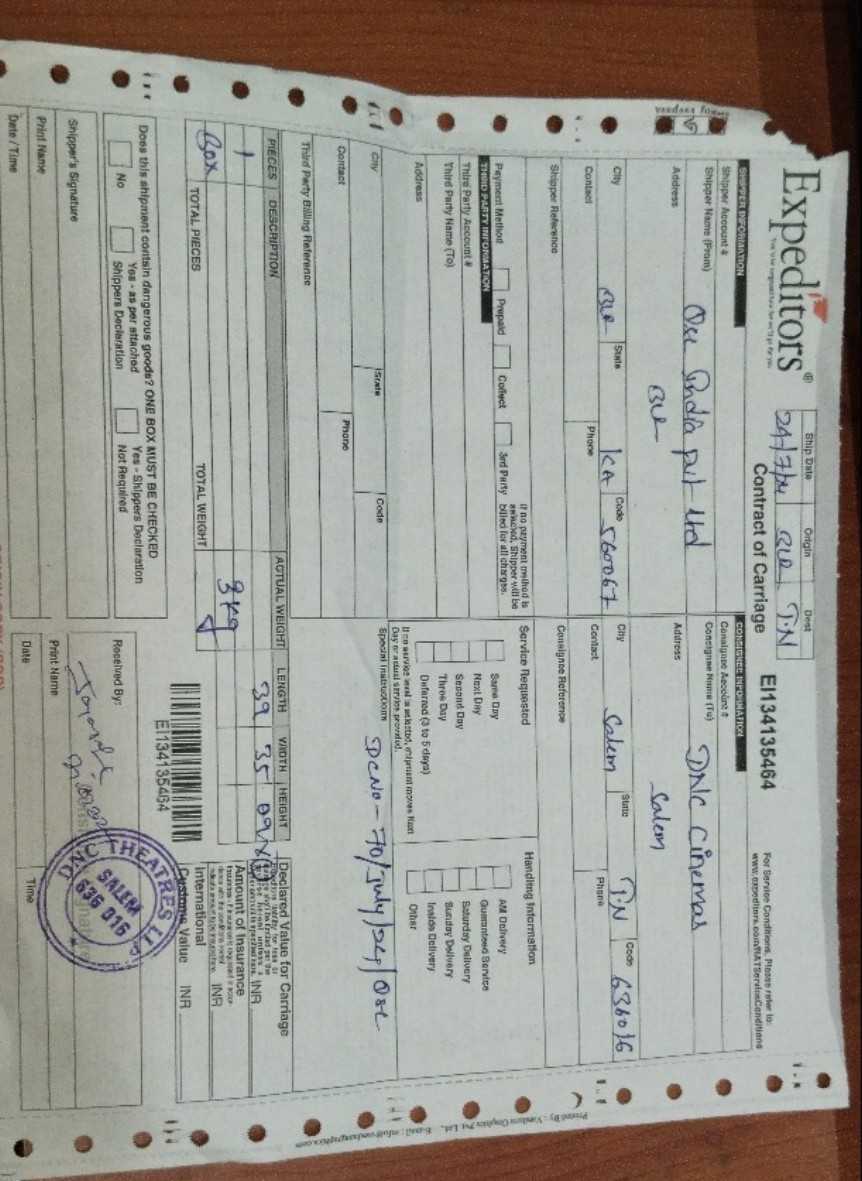 Expeditors®
You'd be surprised how far we'll go for you.
Ship Date Origin Dest
24/7/24 BLR T.N
Contract of Carriage
EI134135464
For Service Conditions, Please refer to:
www.expeditors.com/NATServiceConditions
SHIPPER INFORMATION
Shipper Account #
Shipper Name (From)
India pvt ltd
Address
BLR
City BLR State KA Code 560067
Contact Phone
Shipper Reference
CONSIGNEE INFORMATION
Consignee Account #
Consignee Name (To) DNC Cinemas
Address
Salem
City Salem State T.N Code 636016
Contact Phone
Consignee Reference
Payment Method Prepaid Collect 3rd Party
If no payment method is selected, Shipper will be billed for all charges.
THIRD PARTY INFORMATION
Third Party Account #
Third Party Name (To)
Address
City State Code
Contact Phone
Third Party Billing Reference
Service Requested
Same Day
Next Day
Second Day
Three Day
Deferred (3 to 5 days)
If no service level is selected, shipment moves Next Day or actual service provided.
Handling Information
AM Delivery
Guaranteed Service
Saturday Delivery
Sunday Delivery
Inside Delivery
Other
Special Instructions
DC No - 70/July/
PIECES DESCRIPTION ACTUAL WEIGHT LENGTH WIDTH HEIGHT
1 39 35 09
Box TOTAL PIECES TOTAL WEIGHT 3kg
Declared Value for Carriage
INR
Amount of Insurance
INR
International
Customs Value INR
EI134135464
Does this shipment contain dangerous goods? ONE BOX MUST BE CHECKED
No
Yes - as per attached Shippers Declaration
Yes - Shippers Declaration Not Required
Shipper's Signature
Print Name
Date / Time
Received By:
Print Name
Date Time
DNC THEATRES
SALEM
636 016
Printed By : Vandana Graphics Pvt. Ltd., E-mail : info@vandanagraphics.com